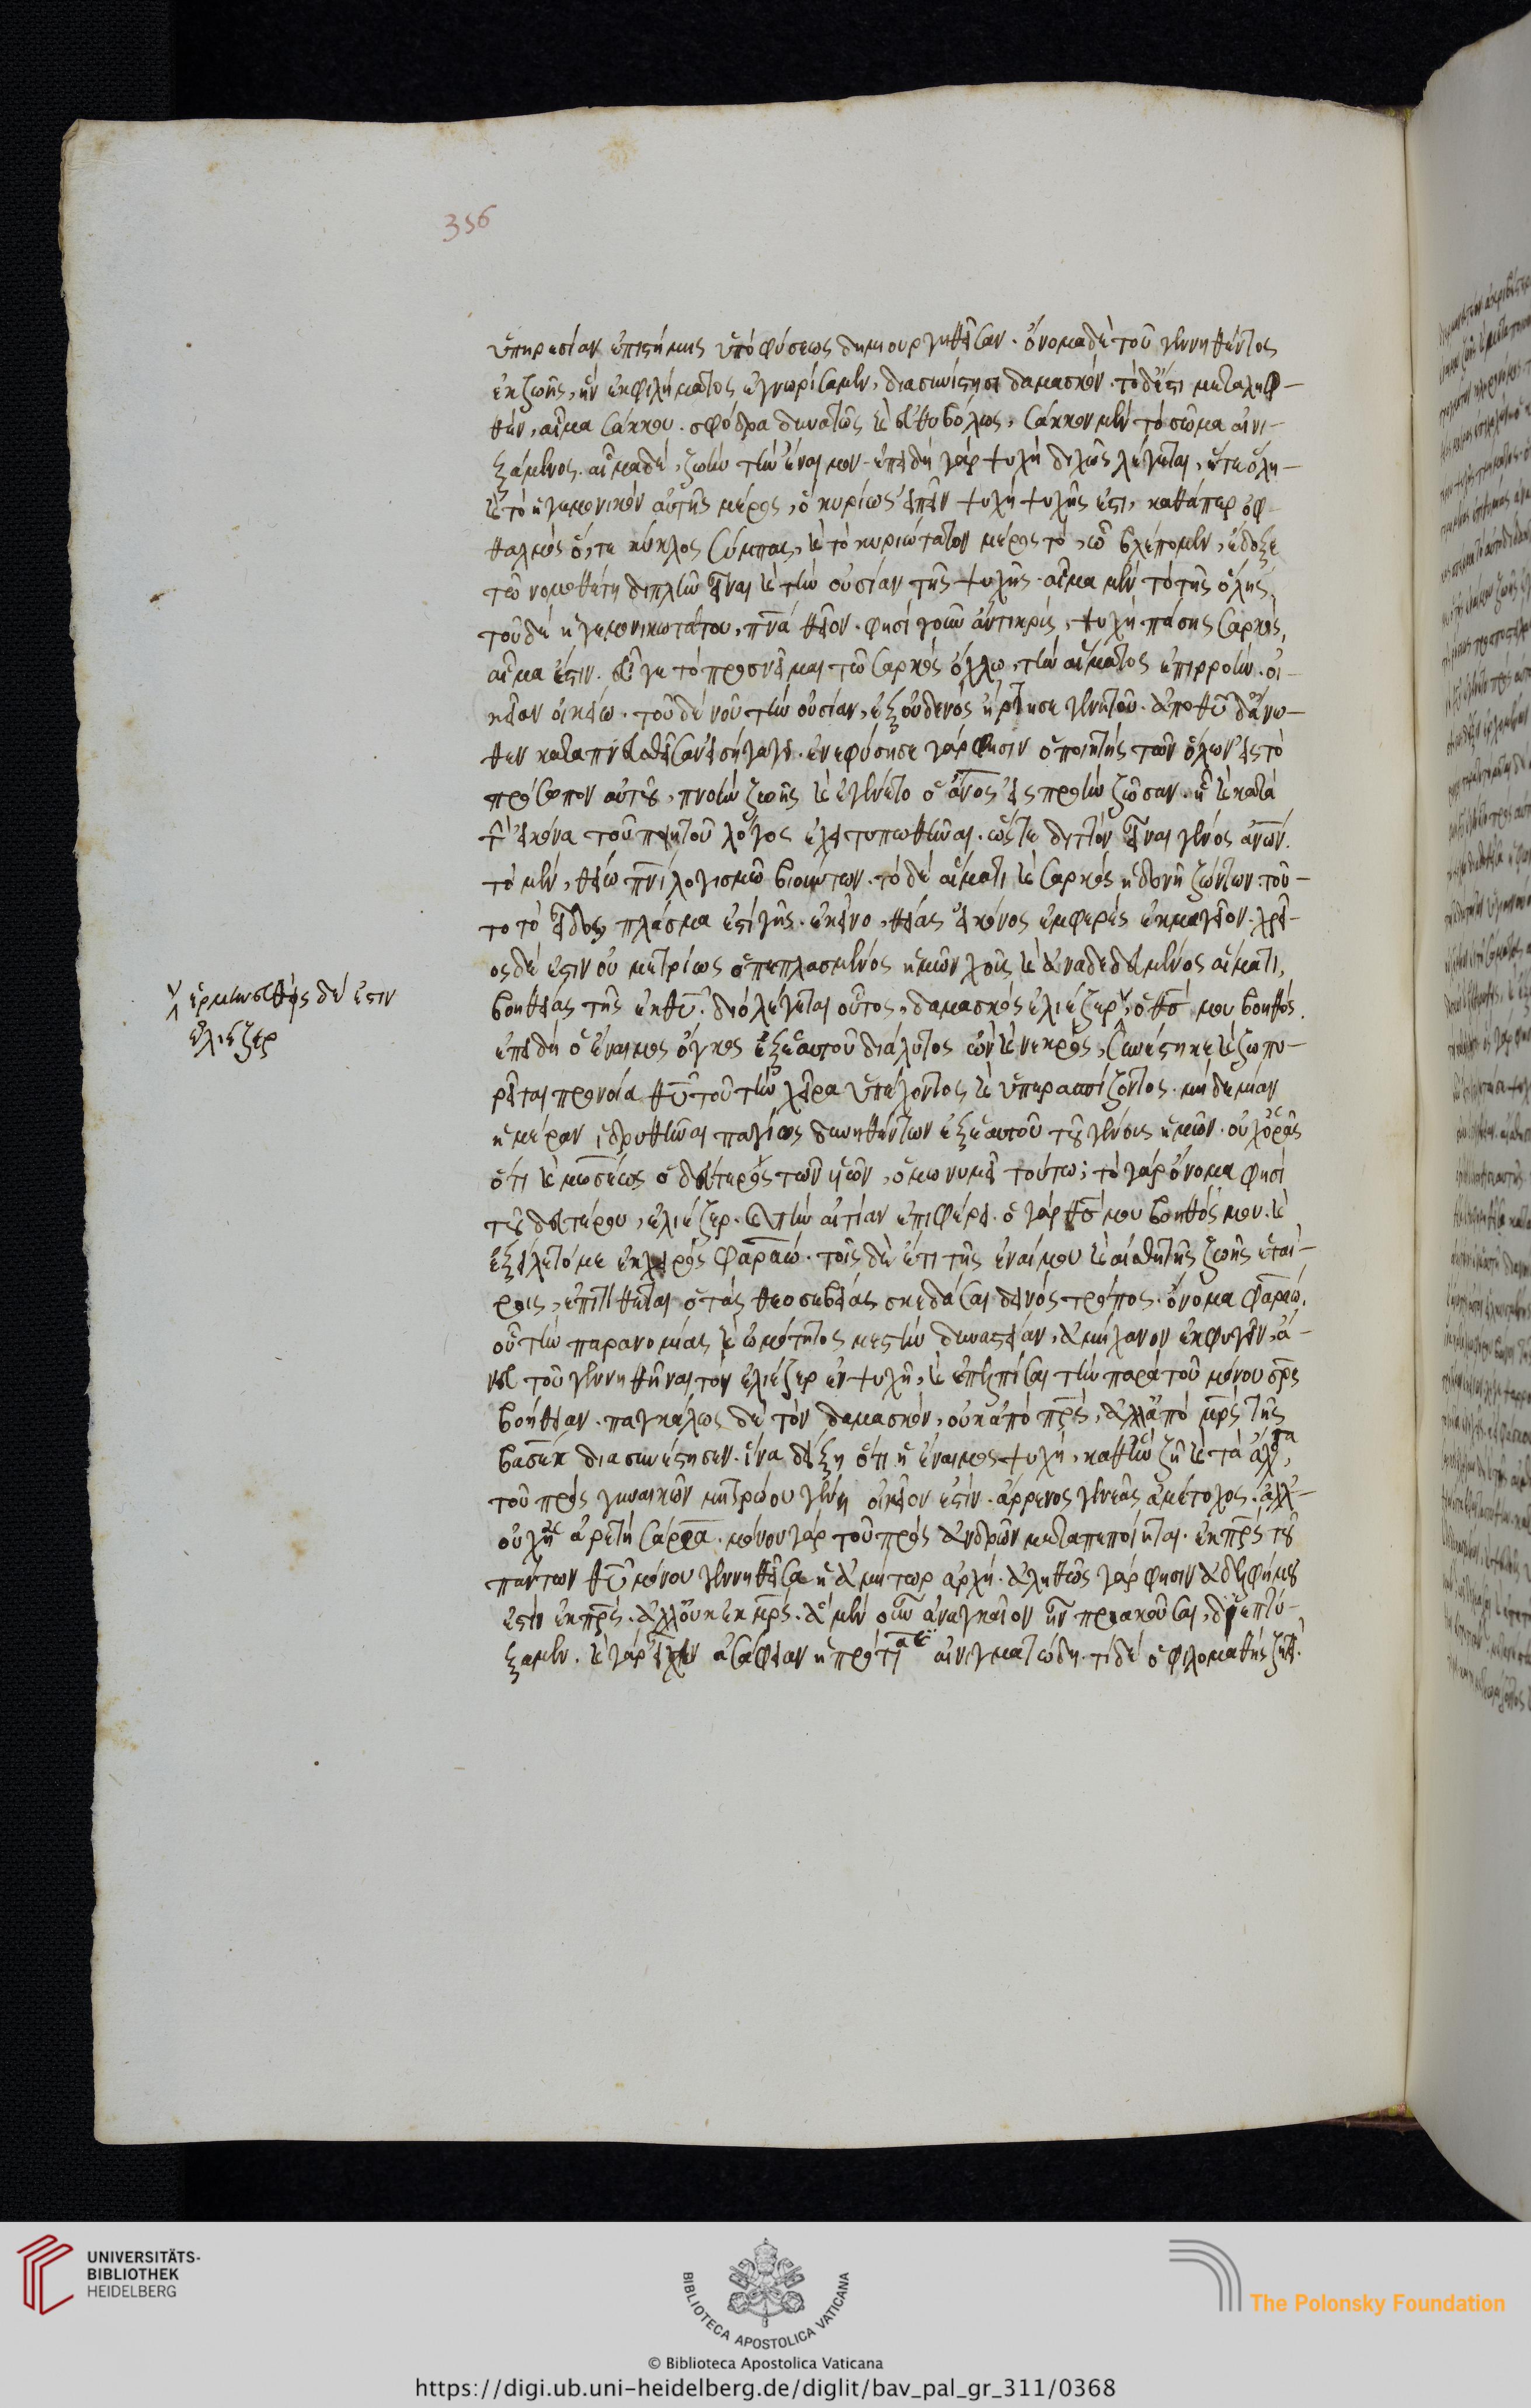 356
ὑπηρεσίαν ἐπιστήμης ὑπὸ φύσεως δημιουργηθεῖσαν. ὄνομα δὲ τοῦ γεννηθέντος
ἐκ ζωῆς, ἣν ἐκ φιλήματος ἐγνωρίσαμεν, διασυνίστησι δαμασκόν. τὸ δ' ἔστι μεταληφ-
θὲν, αἷμα σάκκου. σφόδρα δυνατῶς καὶ εὐθυβόλως, σάκκον μὲν τὸ σῶμα αἰνι-
ξάμενος. αἷμα δὲ, ζωὴν τὴν ἔναιμον. ἐπειδὴ γὰρ ψυχὴ διχῶς λέγεται, ἥτε ὅλη
καὶ τὸ ἡγεμονικὸν αὐτῆς μέρος, ὃ κυρίως εἰπεῖν ψυχὴ ψυχῆς ἐστι, καθάπερ ὀφ-
θαλμὸς ὅ, τε κύκλος σύμπας, καὶ τὸ κυριώτατον μέρος τὸ, ᾧ βλέπομεν, ἔδοξε
τῷ νομοθέτη διπλῆν εἶναι καὶ τὴν οὐσίαν τῆς ψυχῆς. αἷμα μὲν τὸ τῆς ὅλης,
τοῦ δὲ ἡγεμονικωτάτου, πνᾶ θεῖον. φησὶ γοῦν ἀντικρὺς, ψυχὴ πάσης σαρκὸς,
αἷμα ἐστιν. εὖ γε τὸ προσνεῖμαι τῷ σαρκὸς ὄχλῳ, τὴν αἵματος ἐπιρροὴν. οἰ-
κεῖον οἰκείω. τοῦ δὲ νοῦ τὴν οὐσίαν, ἐξ οὐδενὸς ἤρτησε γενητοῦ. ἀπὸ θῦ δ' ἄνω-
θεν καταπνευσθεῖσαν εἰσήγαγε. ἐνεφύσησε γάρ φησιν ὁ ποιητὴς τῶν ὅλων εἰς τὸ
πρόσωπον αὐτοῦ, πνοὴν ζωῆς καὶ ἐγένετο ὁ ἄνος εἰς ψυχὴν ζῶσαν. ᾗ καὶ κατὰ
τὴν εἰκόνα τοῦ ποιητοῦ λόγος ἔχει τυπωθῆναι. ὥστε διττὸν εἶναι γένος ἀνῶν.
τὸ μὲν, θείω πνι λογισμῶ βιούντων. τὸ δὲ αἵματι καὶ σαρκὸς ἡδονῇ ζώντων. τοῦ-
το τὸ εἶδος, πλάσμα ἐστὶ γῆς. ἐκεῖνο, θείας εἰκόνος ἐμφερὲς ἐκμαγεῖον. χρεῖ-
ος δέ ἐστιν οὐ μετρίως ὁ πεπλασμένος ἡμῶν χοῦς καὶ ἀναδεδευμένος αἵματι,
βοηθείας τῆς ἐκ θῦ. διὸ λέγεται οὗτος, δαμασκὸς ἐλιέζερ, ὁ θς μου βοηθός.
ἐπειδὴ ὁ ἔναιμος ὄγκος ἐξ ἑαυτοῦ διάλυτος ὢν καὶ νεκρὸς, συνέστηκε καὶ ζωπυ-
ρεῖται προνοία θῦ τοῦ τὴν χεῖρα ὑπερέχοντος καὶ ὑπερασπίζοντος. μηδεμίαν
ἡμέραν ἱδρυθῆναι παγίως δυνηθέντων ἐξ ἑαυτοῦ τοῦ γένους ἡμῶν. οὐχ ὁρᾷς
ὅτι καὶ μωσέως ὁ δεύτερος τῶν υἱῶν, ὁμωνυμεῖ τούτω; τὸ γὰρ ὄνομα φησὶ
τοῦ δευτέρου, ἐλιέζερ. καὶ τὴν αἰτίαν ἐπιφέρει. ὁ γὰρ θς μου βοηθός μου. καὶ
ἐξείλετό με ἐκ χειρὸς φαραώ. τοῖς δὲ ἔτι τῆς ἐναίμου καὶ αἰσθητῆς ζωῆς ἑταί-
ροις, ἐπιτίθεται ὁ τὰς θεοσεβείας σκεδάσαι δεινὸς τρόπος. ὄνομα φαραώ.
οὗ τὴν παρανομίας καὶ ὠμότητος μεστὴν δυναστείαν, ἀμήχανον ἐκφυγεῖν, ἄ-
νευ τοῦ γεννηθῆναι τὸν ἐλιέζερ ἐν ψυχῇ, καὶ ἐπελπίσαι τὴν παρὰ τοῦ μόνου σρς
βοήθειαν. παγκάλως δὲ τὸν δαμασκὸν, οὐκ ἀπὸ πρς, ἀλλ' ἀπὸ μρς τῆς
βασεκ διασυνέστησεν. ἵνα δείξῃ ὅτι ἡ ἔναιμος ψυχὴ, καθ' ἣν ζῇ καὶ τὰ ἄλογα,
τοῦ πρὸς γυναικῶν μητρώου γένη οἰκεῖον ἐστίν. ἄρρενος γενεᾶς ἀμέτοχος. ἀλλ'
οὐχ ἡ ἀρετὴ σάρρα. μόνου γὰρ τοῦ πρὸς ἀνδρῶν μεταπεποίηται. ἐκ πρς τοῦ
πάντων θῦ μόνου γεννηθεῖσα ἡ ἀμήτωρ ἀρχή. ἀληθῶς γάρ φησιν ἀδελφή μου
ἐστὶν ἐκ πρς. ἀλλ' οὐκ ἐκ μρς. ἃ μὲν οὖν ἀναγκαῖον ἦν προακοῦσαι, διεπτύ-
ξαμεν. καὶ γὰρ εἶχεν ἀσάφειαν ἡ πρότασις αἰνιγματώδη. τί δὲ ὁ φιλομαθὴς ζητεῖ.
ἑρμηνευθεὶς δέ ἐστιν
ἐλιέζερ
UNIVERSITÄTS-
BIBLIOTHEK
HEIDELBERG
BIBLIOTECA APOSTOLICA VATICANA
The Polonsky Foundation
© Biblioteca Apostolica Vaticana
https://digi.ub.uni-heidelberg.de/diglit/bav_pal_gr_311/0368